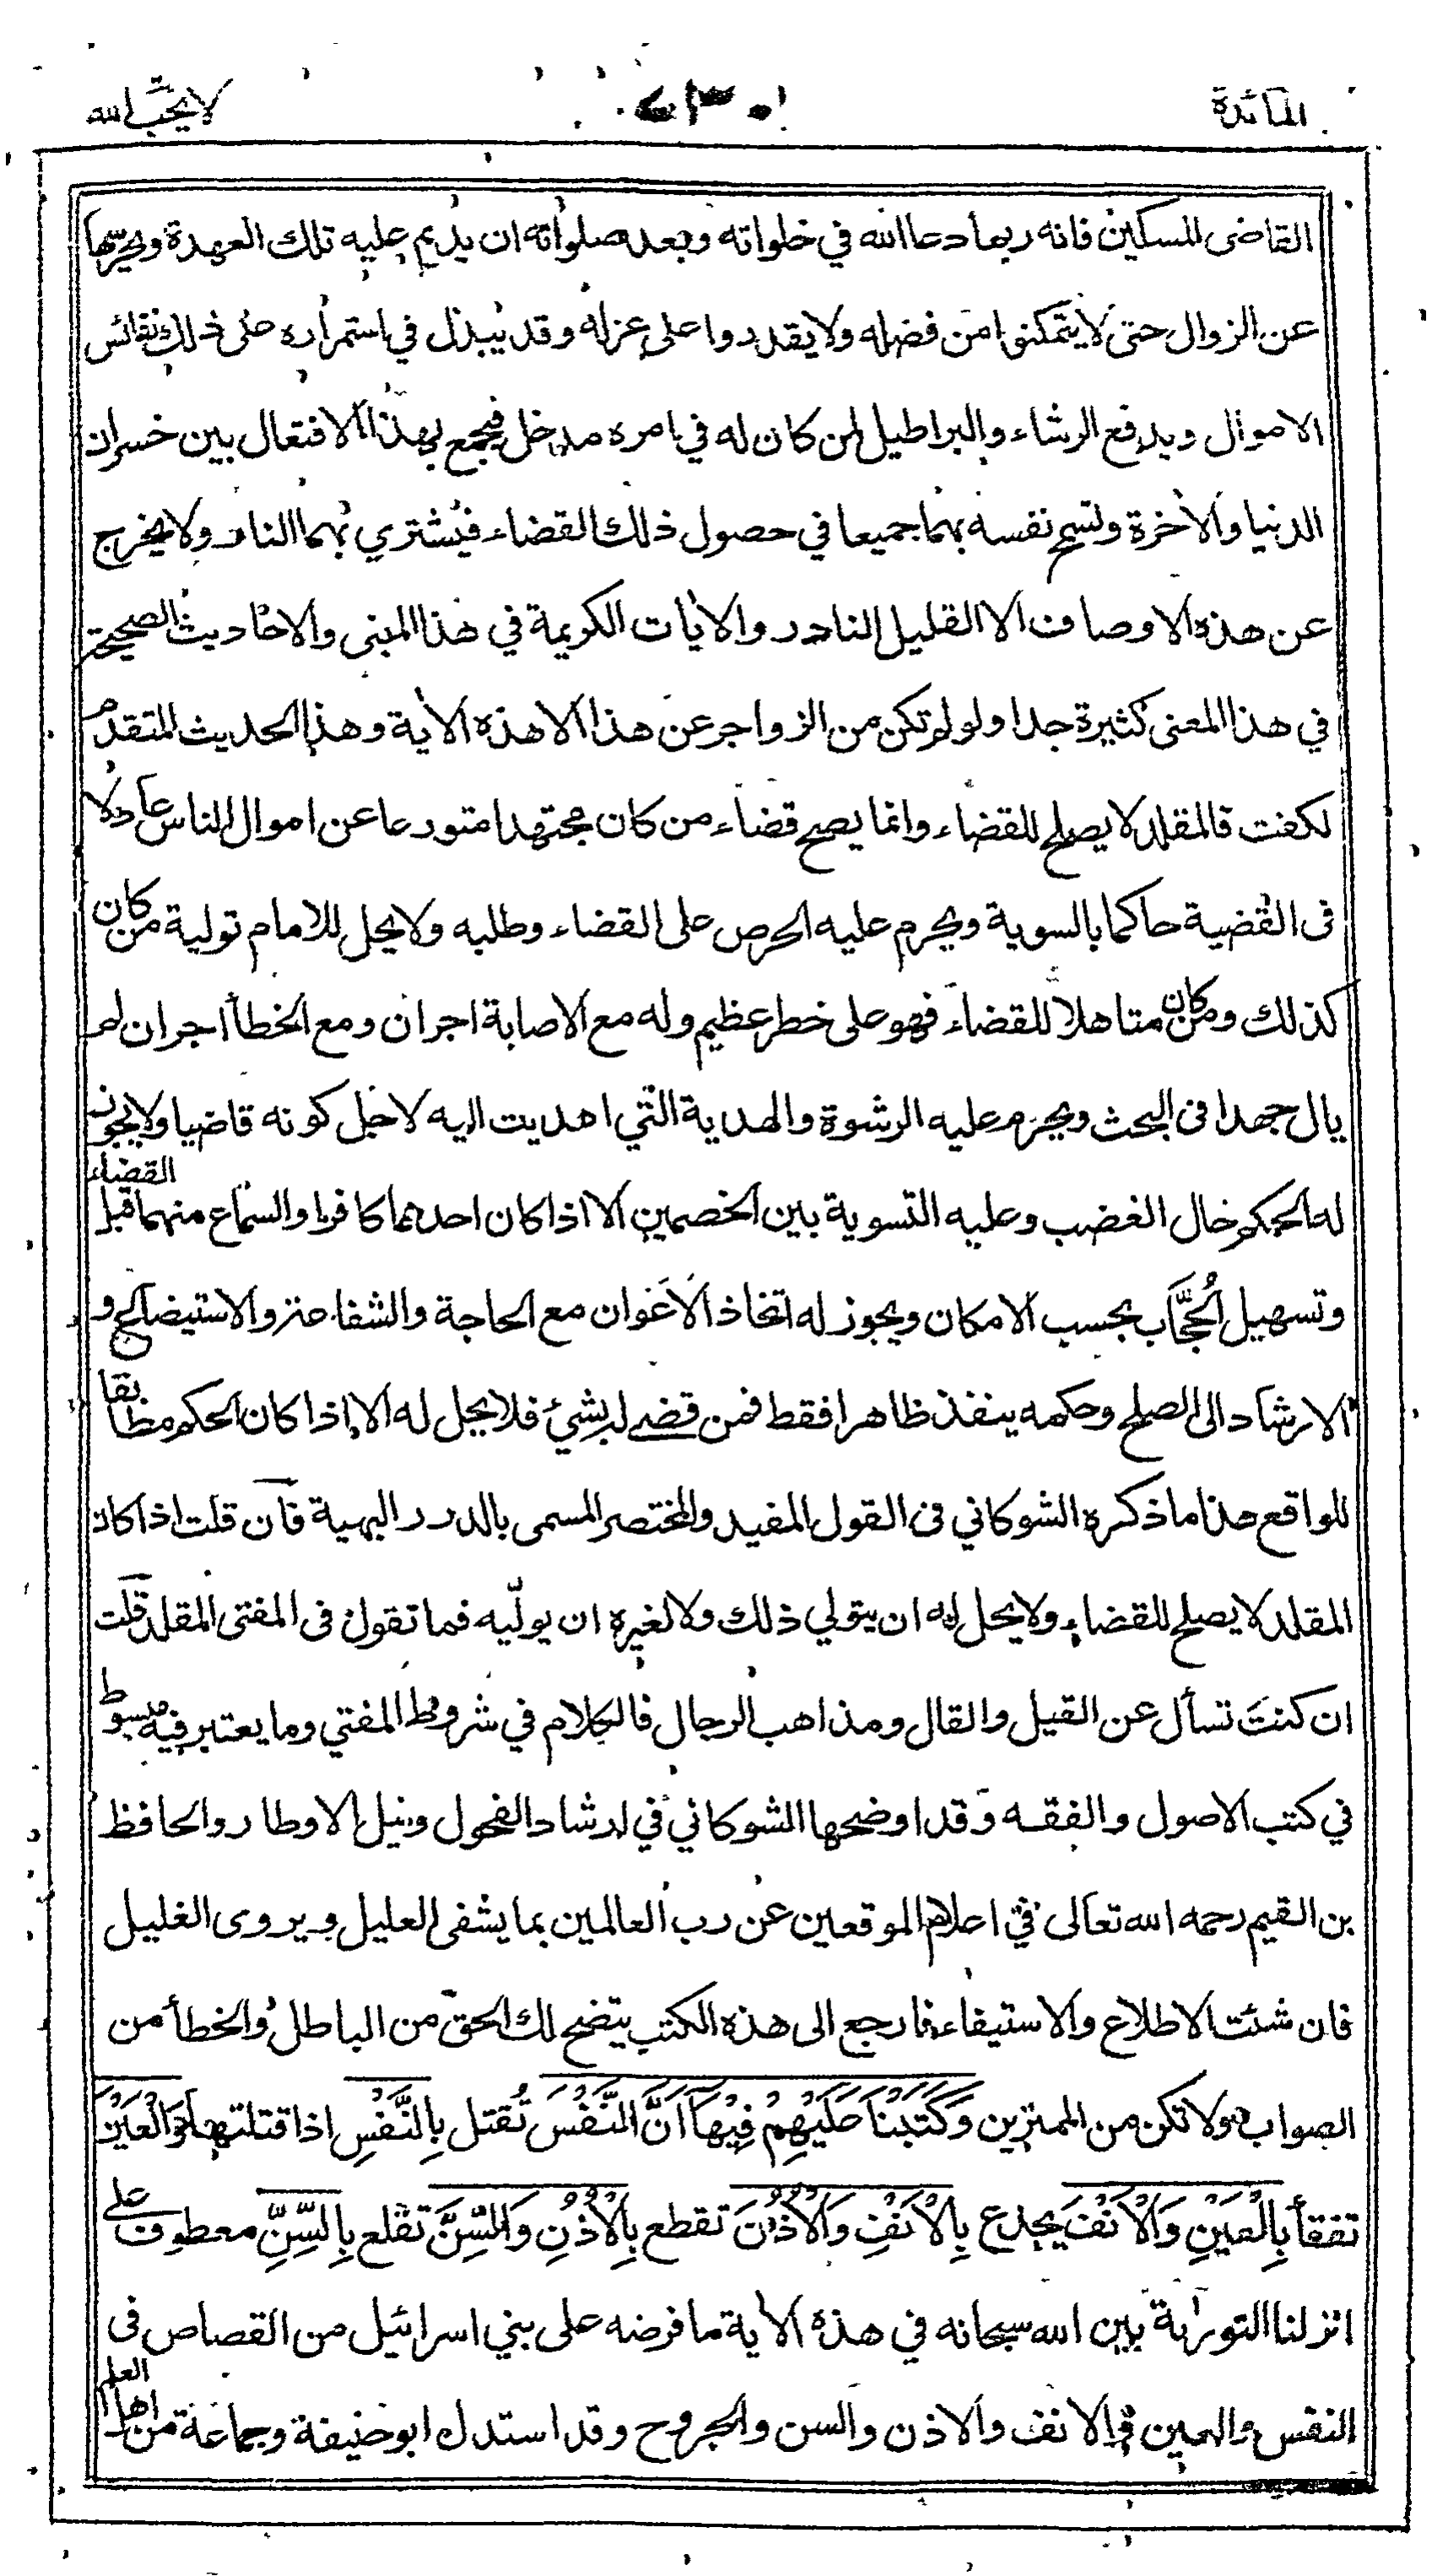 المائدة ٧٣٠ لا يحب الله
القاضى المسكين فانه ربما دعا الله في خلواته وبعد صلواته ان يديم عليه تلك العهدة ويحرسها
عن الزوال حتى لا يتمكنوا من فضله ولا يقدروا على عزله وقد يبذل في استمراره على ذلك نفائس
الاموال ويدفع الرشاء والبراطيل لمن كان له في امره مدخل فيجمع بهذا الافتعال بين خسران
الدنيا والأخرة وتسمح نفسه بهما جميعا في حصول ذلك القضاء فيشتري بهما النار ولا يخرج
عن هذه الاوصاف الا القليل النادر والأيات الكريمة في هذا المبنى والاحاديث الصحيحة
في هذا المعنى كثيرة جدا ولو لم تكن من الزواجر عن هذا الا هذه الأية وهذا الحديث المتقدم
لكفت فالمقلد لا يصلح للقضاء وانما يصح قضاء من كان مجتهدا متورعا عن اموال الناس عادلا
فى القضية حاكما بالسوية ويحرم عليه الحرص على القضاء وطلبه ولا يحل للامام تولية من كان
كذلك ومن كان متاهلا للقضاء فهو على خطر عظيم وله مع الاصابة اجران ومع الخطأ اجر ان لم
يال جهدا فى البحث ويحرم عليه الرشوة والهدية التي اهديت اليه لاجل كونه قاضيا ولا يجوز
له الحكم حال الغضب وعليه التسوية بين الخصمين الا اذا كان احدهما كافرا والسماع منهما قبل القضاء
وتسهيل الحُجَّاب بحسب الامكان ويجوز له اتخاذ الاعوان مع الحاجة والشفاعة والاستيضاح و
الارشاد الى الصلح وحكمه ينفذ ظاهرا فقط فمن قضى له بشئ فلا يحل له الا اذا كان الحكم مطابقا
للواقع هذا ما ذكره الشوكاني فى القول المفيد والمختصر المسمى بالدرر البهية فان قلت اذا كان
المقلد لا يصلح للقضاء ولا يحل له ان يتولي ذلك ولا لغيره ان يولّيه فما تقول فى المفتى المقلد قلت
ان كنتَ تسأل عن القيل والقال ومذاهب الرجال فالكلام في شروط المفتي وما يعتبر فيه مبسوط
في كتب الاصول والفقه وقد اوضحها الشوكاني في ارشاد الفحول ونيل الاوطار والحافظ
بن القيم رحمه الله تعالى في اعلام الموقعين عن رب العالمين بما يشفى العليل ويروى الغليل
فان شئت الاطلاع والاستيفاء فارجع الى هذه الكتب يتضح لك الحق من الباطل والخطأ من
الصواب ولا تكن من الممترين وَكَتَبْنَا عَلَيْهِمْ فِيْهَآ اَنَّ النَّفْسَ تُقتل بِالنَّفْسِ اذا قتلتها وَالْعَيْنَ
تفقأ بِالْعَيْنِ وَالْاَنْفَ يجدع بِالْاَنْفِ وَالْاُذُنَ تقطع بِالْاُذُنِ وَالسِّنَّ تقلع بِالسِّنِّ معطوف على
انزلنا التورٰىة بين الله سبحانه في هذه الأية ما فرضه على بني اسرائيل من القصاص فى
النفس والعين والانف والاذن والسن والجروح وقد استدل ابو حنيفة وجماعة من اهل العلم